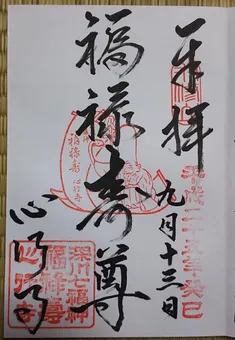 奉拝
平成二十五年癸巳
九月十三日
福禄寿尊
福禄寿 心行寺
心行寺
深川七福神
福禄寿
心行寺